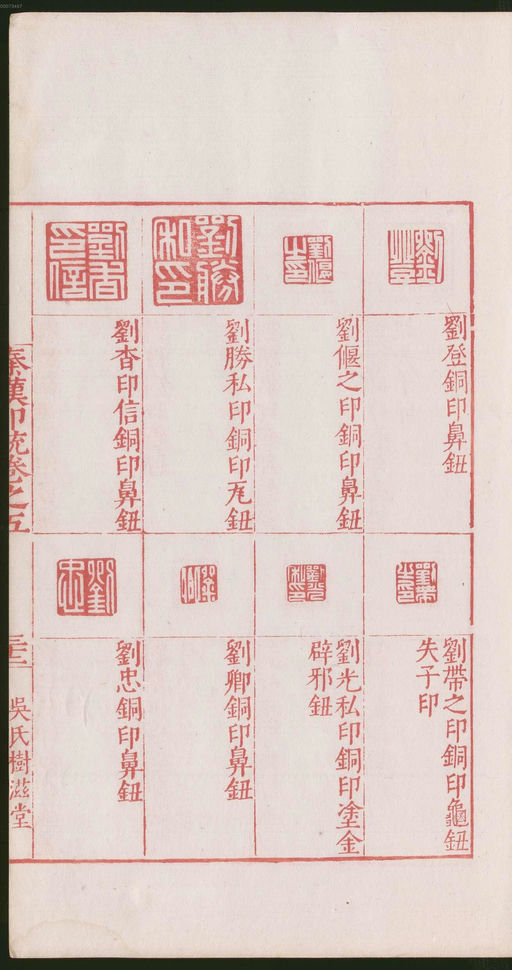 劉登銅印鼻鈕
劉偃之印銅印鼻鈕
劉勝私印銅印瓦鈕
劉杳印信銅印鼻鈕
劉帶之印銅印龜鈕
失子印
劉光私印銅印塗金
辟邪鈕
劉卿銅印鼻鈕
劉忠銅印鼻鈕
秦漢印統卷之五
吳氏樹滋堂
00073467